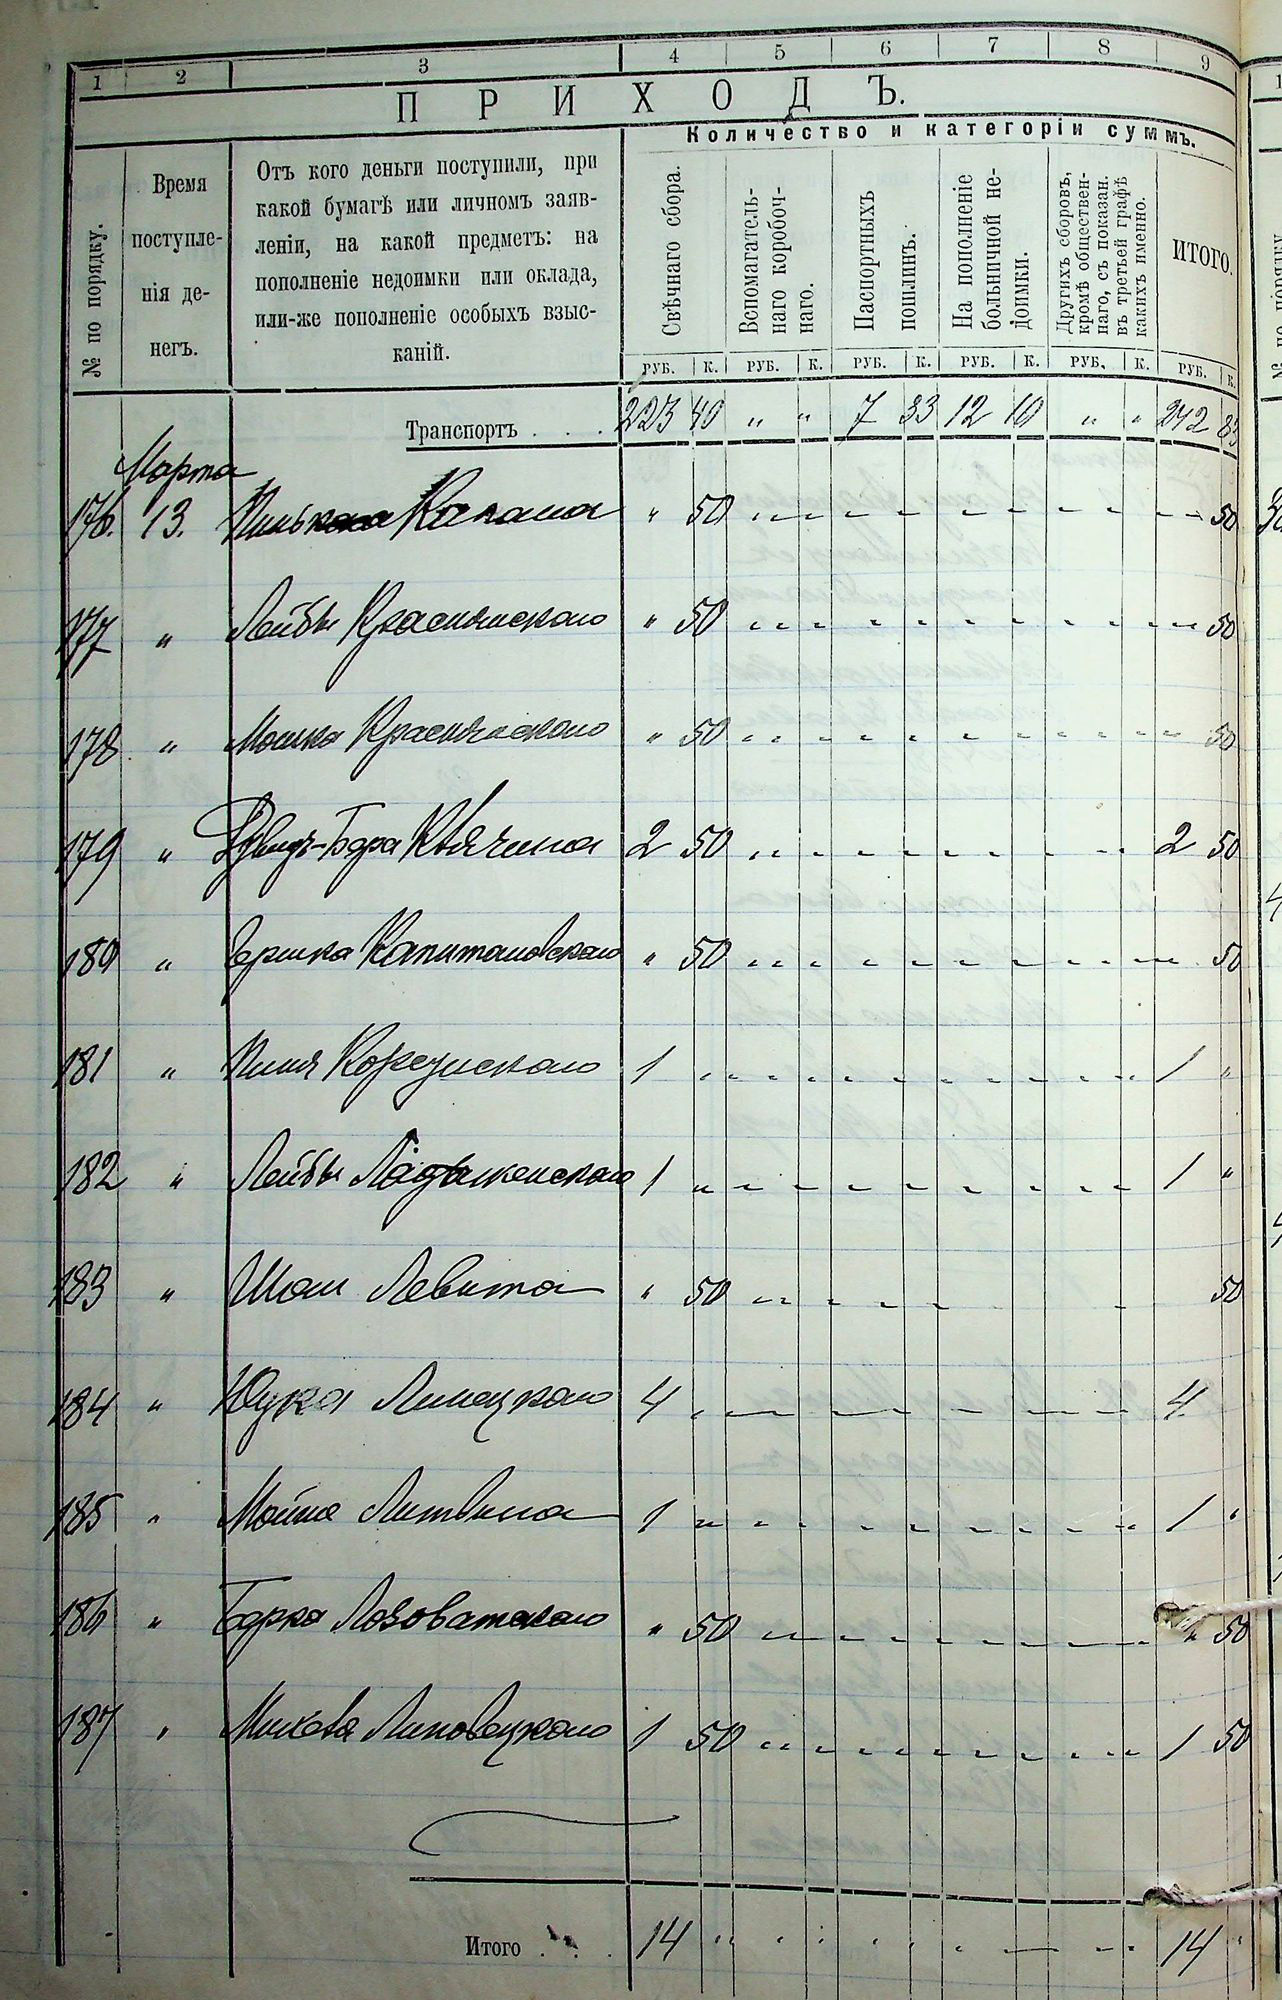 1 2 3 4 5 6 7 8 9
ПРИХОДЪ.
Количество и категоріи суммъ.
№ по порядку.
Время поступле-
нія де-
негъ.
Отъ кого деньги поступили, при
какой бумагѣ или личномъ заяв-
леніи, на какой предметъ: на
пополненіе недоимки или оклада,
или-же пополненіе особыхъ взыс-
каній.
Свѣчнаго сбора.
Вспомагатель-
наго коробоч-
наго.
Паспортныхъ
пошлинъ.
На пополненіе
больничной не-
доимки.
Другихъ сборовъ,
кромѣ обществен-
наго, съ показан.
въ третьей графѣ
какихъ именно.
ИТОГО.
РУБ. К. РУБ. К. РУБ. К. РУБ. К. РУБ. К. РУБ. К.
Транспортъ . . . 223 40 " " 7 33 12 10 " " 242 83
Марта
176. 13. " 50 50
177 " Лейбы Краснянскаго " 50 50
178 " Мошка Краснянскаго " 50 50
179 " Давидъ-Бера Клячина 2 50 2 50
180 " Ершка Капитановскаго " 50 50
181 " Пиня Корсунскаго 1 1 "
182 " Лейбы Ладыженскаго 1 " 1 "
183 " Шаи Левита " 50 50
184 " Липецкаго 4 4
185 " Мойше Литвина 1 " 1 "
186 " Берка Лозоватскаго " 50 " 50
187 " Липовецкаго 1 50 1 50
Итого . . . 14 " 14 "